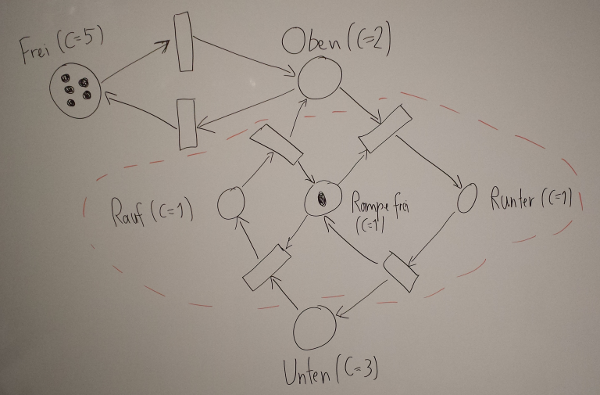 Frei (C=5)
Oben (C=2)
Rauf (C=1)
Rampe frei
(C=1)
Runter (C=1)
Unten (C=3)